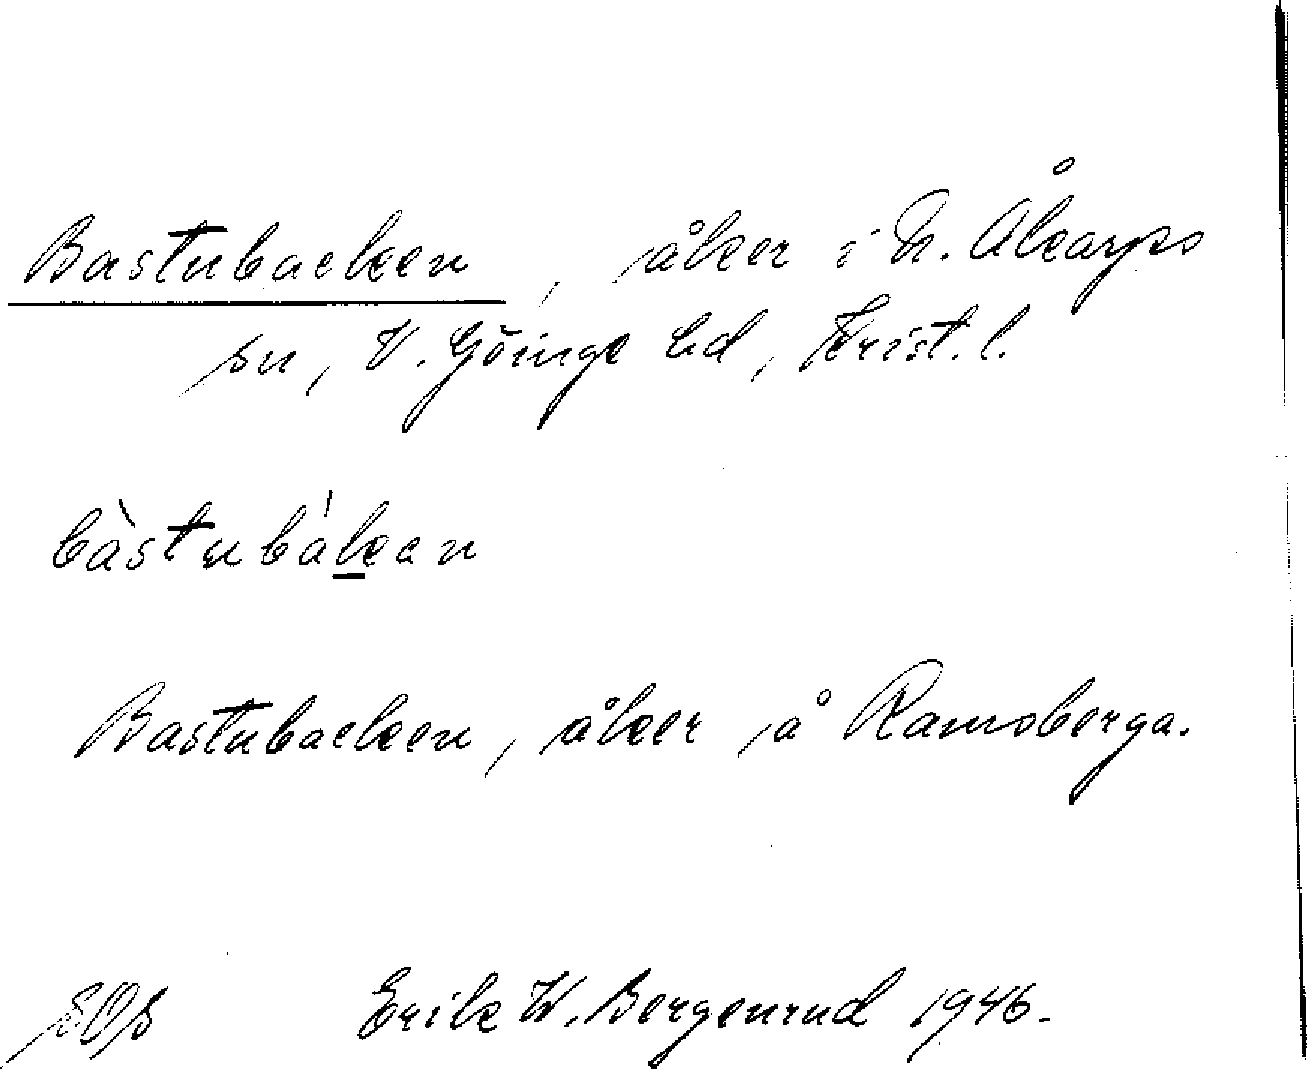 Bastubacken, åker i N. Åkarps
sn, V. Göinge hd, Krist. l.
bàstubákan
Bastubacken, åker på Ramsberga.
Erik W. Bergenrud 1946.